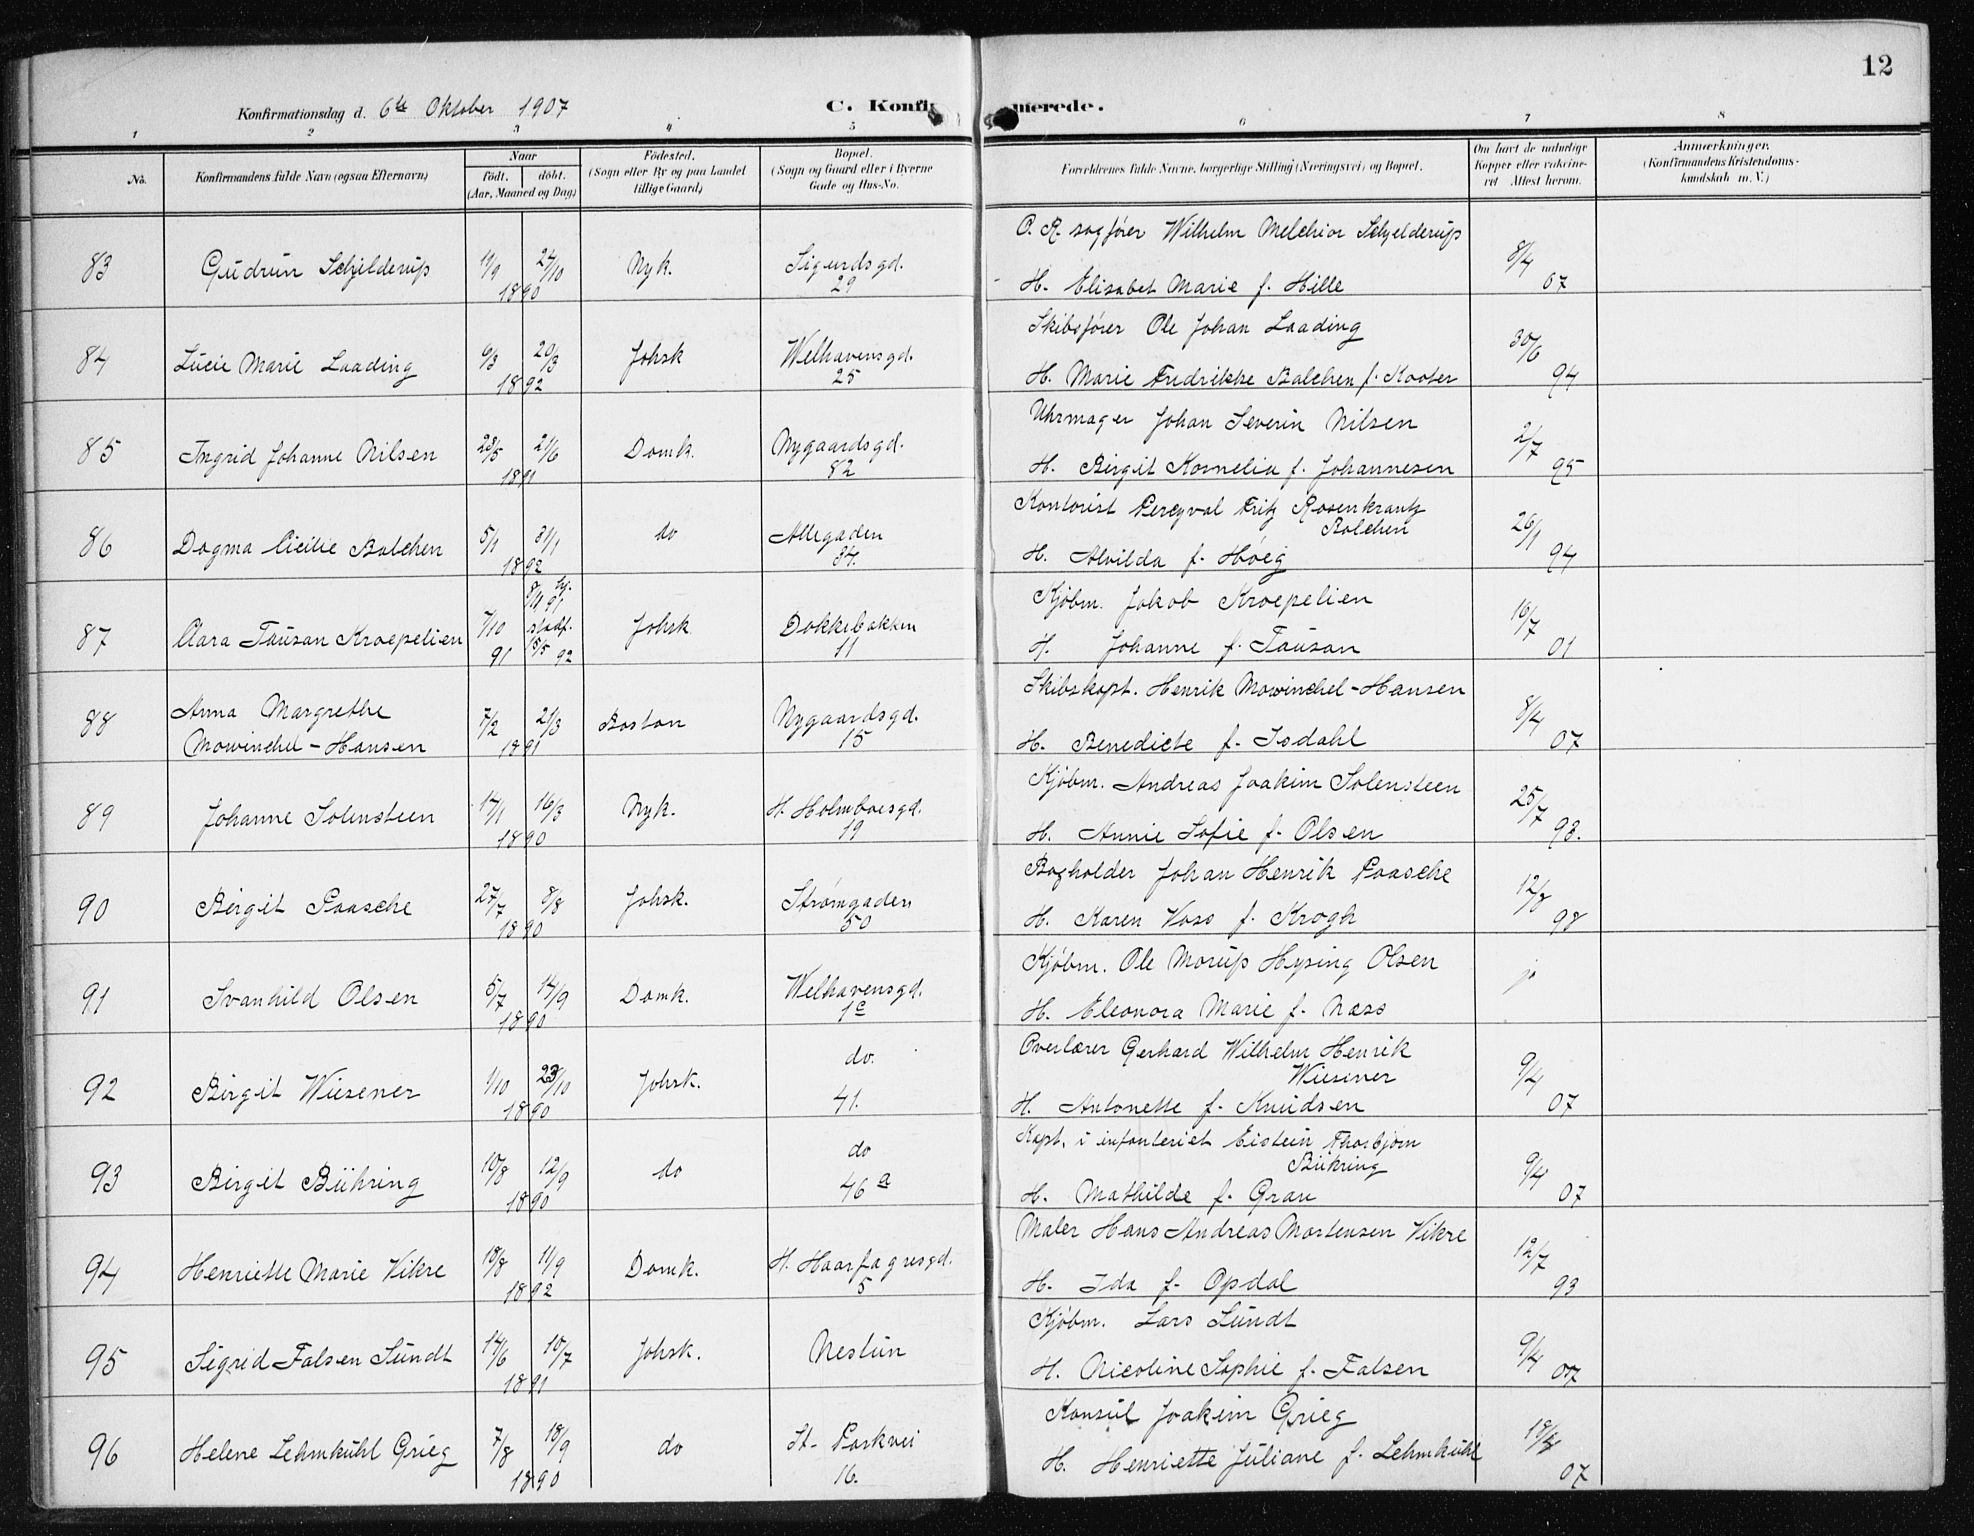 12
Konfirmationsdag d. 6te Oktober 1907
C. Konfirmerede.
1 2 3 4 5 6 7 8
No.
Konfirmandens fulde Navn (ogsaa Efternavn)
Naar
født. døbt.
(Aar, Maaned og Dag)
Fødested.
(Sogn eller By og paa Landet
tillige Gaard)
Bopæl.
(Sogn og Gaard eller i Byerne
Gade og Hus-No.
Forældrenes fulde Navne, borgerlige Stilling (Næringsvei) og Bopæl.
Om havt de naturlige
Kopper eller vakcine-
ret Attest herom.
Anmærkninger.
(Konfirmandens Kristendoms-
kundskab m. V.)
O. R. sagfører Wilhelm Melchior Schjelderup
83 Gudrun Schjelderup 11/9 24/10 Nyk. Sigurdsgd. 8/4
1890 29 H. Elisabet Marie f. Hille 07
Skibsfører Ole Johan Laading
84 Lucie Marie Laading 6/3 20/3 Johsk Welhavensgd. 30/6
1892 25 H. Marie Fredrikke Balchen f. Koster 94
Uhrmager Johan Severin Nilsen
85 Ingrid Johanne Nilsen 28/5 21/6 Domk. Nygaardsgd. 2/7
1891 82 H. Birgit Kornelia f. Johannesen 95
Kontorist Percyval Fritz Rosenkrantz
Balchen
86 Dagma Cicilie Balchen 5/1 31/1 do Allegaden 26/1
1892 34. H. Alvilda f. Høeg 94
8/11 hj. 91
Kjøbm. Jakob Kroepelien
87 Clara Tausan Kroepelien 7/10 stadf. Johsk. Dokkebakken 16/7
91 15/5 92 11 H. Johanne f. Tausan 01
Skibskapt. Henrik Mowinckel-Hansen
88 Anna Margrethe 7/2 21/3 Boston Nygaardsgd. 8/4
Mowinckel-Hansen 1891 15 H. Benedicte f. Isdahl 07
Kjøbm. Andreas Joakim Solensteen
89 Johanne Solensteen 14/1 16/3 Nyk. H. Holmboesgd. 25/7
1890 19 H. Annie Sofie f. Olsen 93.
Bogholder Johan Henrik Paasche
90 Birgit Paasche 27/7 8/8 Johsk. Strømgaden 12/8
1890 50 H. Karen Voss f. Krogh 98
Kjøbm. Ole Morup Hysing Olsen
91 Svanhild Olsen 5/7 14/9 Domk. Welhavensgd. jo
1890 1c H. Eleonora Marie f. Næss
Overlærer Gerhard Wilhelm Henrik
Wiesener
92 Birgit Wiesener 1/10 23/10 Johsk. do. 9/4
1890 41. H. Antonette f. Knudsen 07
Kapt. i infanteriet Eistein Thorbjørn
Bühring
93 Birgit Bühring 10/8 12/9 do do 9/4
1890 46 a H. Mathilde f. Gran 07
Maler Hans Andreas Mortensen Vikre
94 Henriette Marie Vikre 18/8 11/9 Domk. H. Haarfagresgd. 12/7
1892 5 H. Ida f. Opdal 93
Kjøbm. Lars Sundt
95 Sigrid Falsen Sundt 14/6 10/7 Johsk. Nestun 9/4
1891 H. Nicoline Sophie f. Falsen 07
Konsul Joakim Grieg
96 Helene Lehmkuhl Grieg 7/8 18/9 do St. Parkvei
1890 16. H. Henriette Juliane f. Lehmkuhl 07